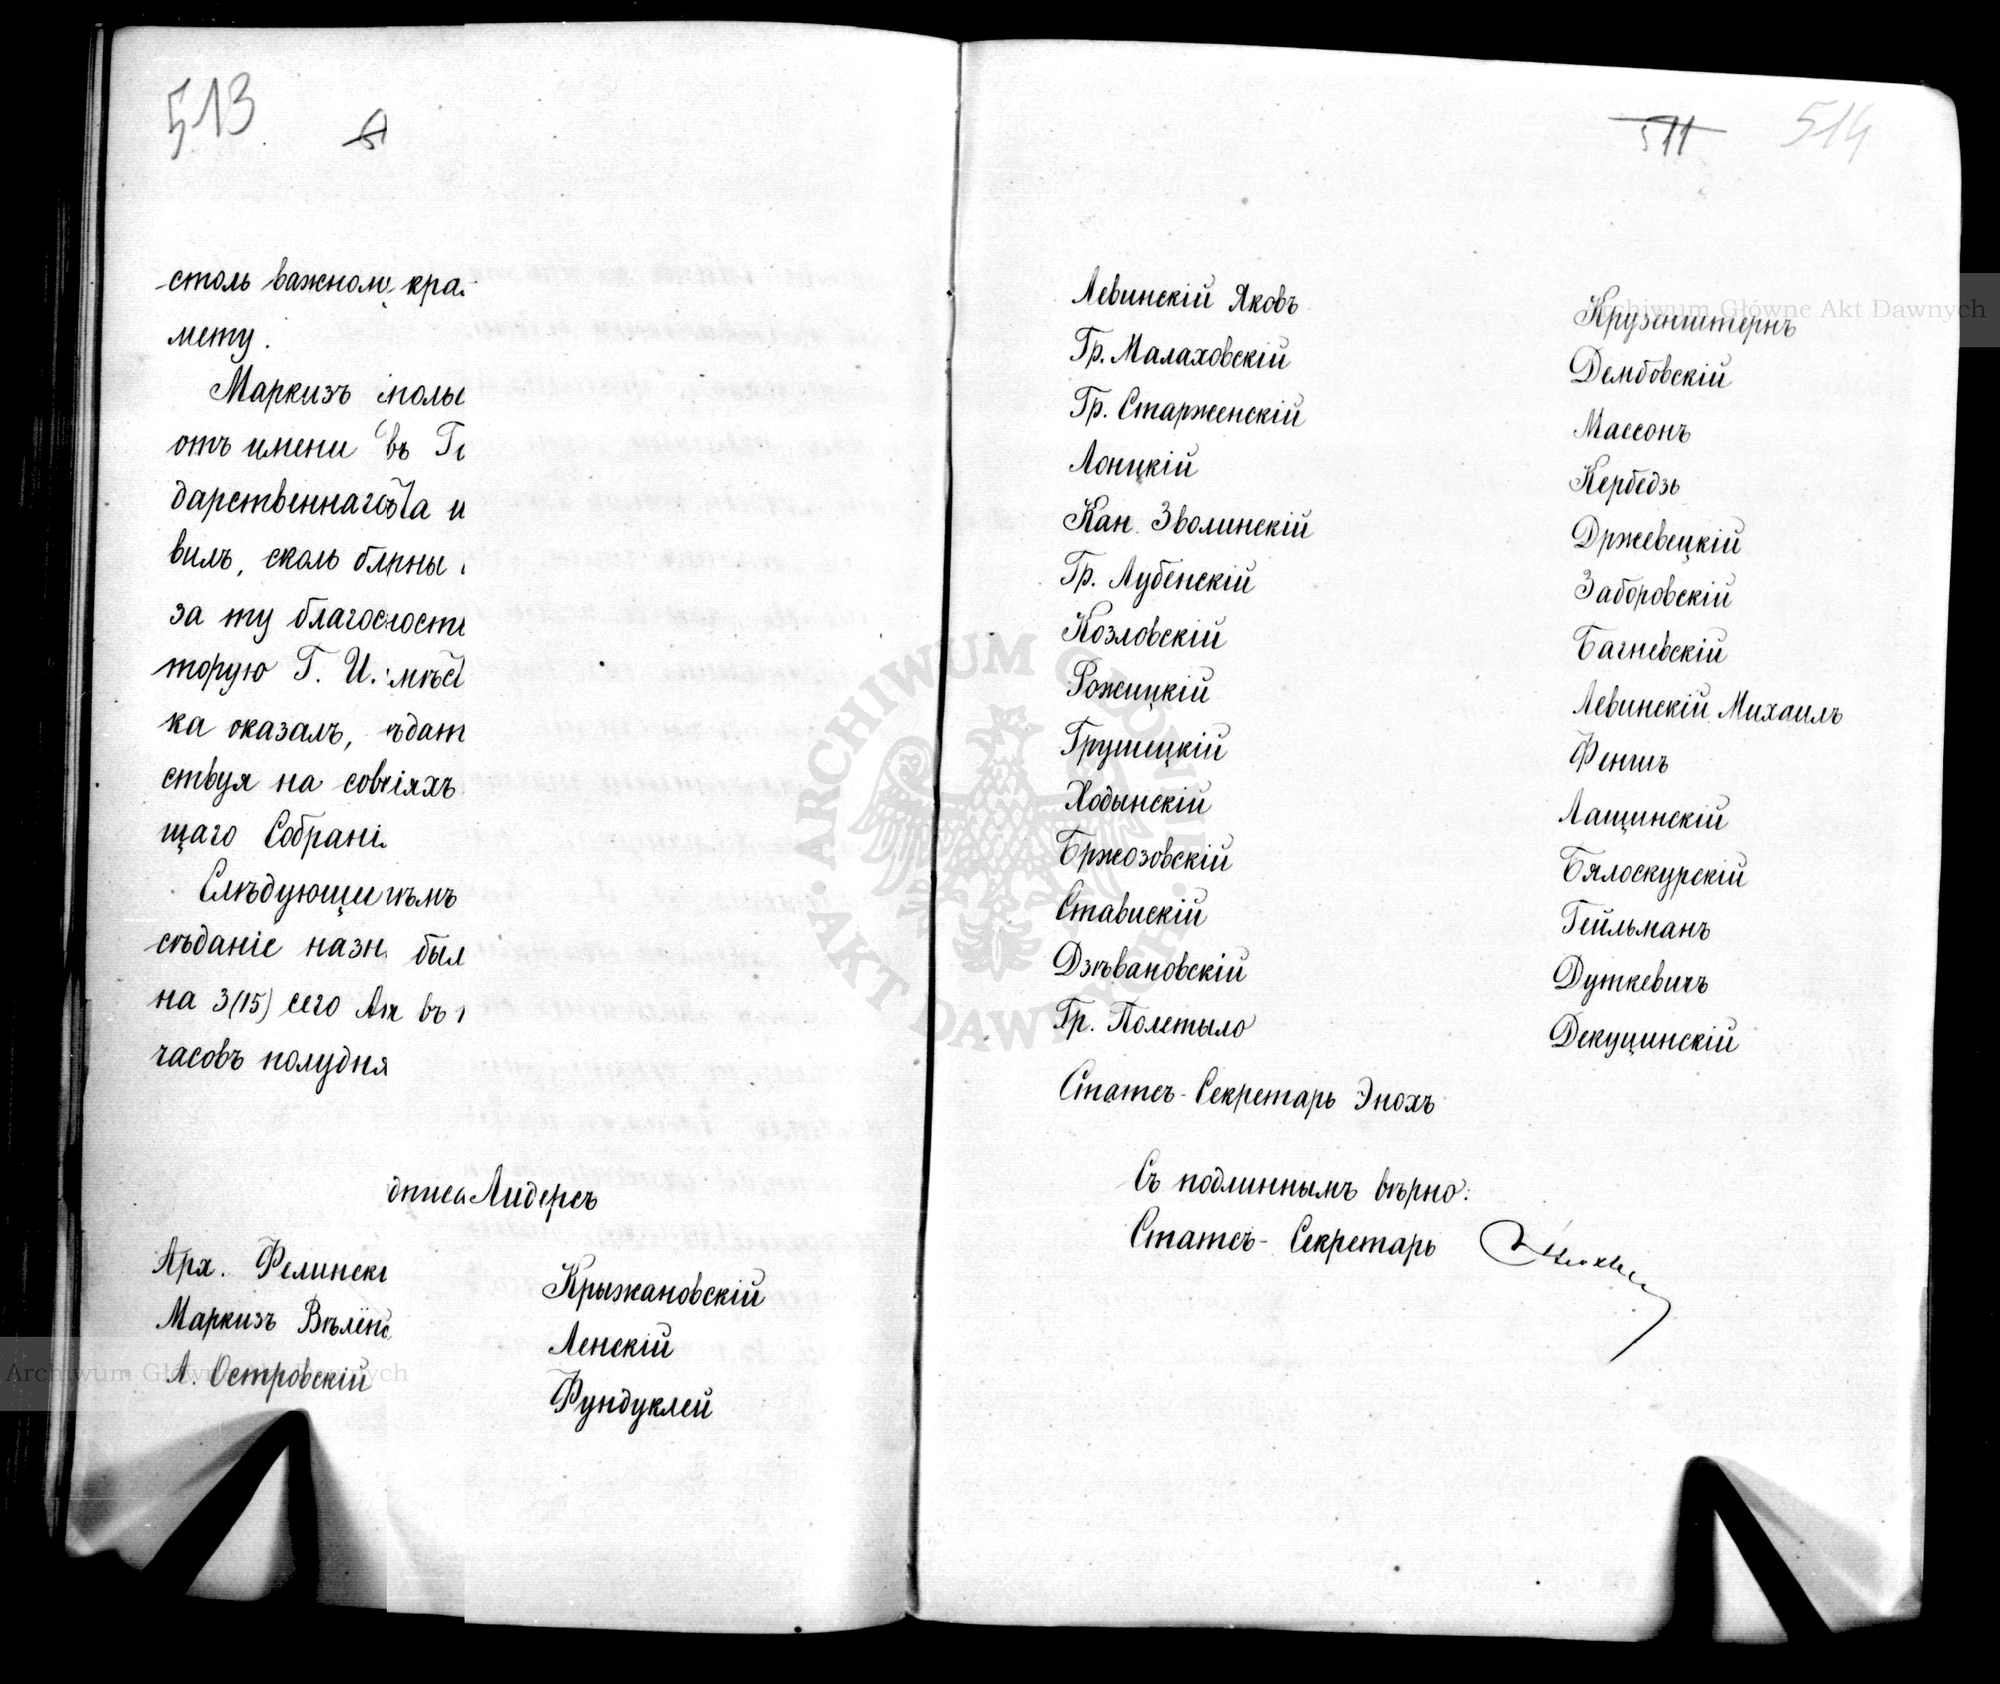 513
столь важному кра
мету.
Маркизъ
отъ имени въ
дарственнаго
вилъ, сколь
за ту
торую Г. И.
ка оказалъ,
ствуя на
щаго Собрані
Слѣдующи
сѣданіе назн был
на 3/15) сего въ
часовъ полудня
Лидерсъ
Арх. Фелинск
Маркизъ Вѣлёпо
А. Островскій
Крыжановскій
Ленскій
Фундуклей
511 514
Левинскій Яковъ
Гр. Малаховскій
Гр. Старженскій
Лонцкій
Кан. Зволинскій
Гр. Лубенскій
Козловскій
Рожицкій
Грушецкій
Ходынскій
Бржозовскій
Ставискій
Дзѣвановскій
Гр. Полетыло
Крузенштернъ
Дембовскій
Массонъ
Кербедзь
Држевецкій
Заборовскій
Багневскій
Левинскій Михаилъ
Феншъ
Лащинскій
Бялоскурскій
Гейльманъ
Дуткевичъ
Декуцинскій
Статсъ-Секретарь Энохъ
Съ подлиннымъ вѣрно:
Статсъ-Секретарь
Archiwum Główne Akt Dawnych
Archiwum Główne Akt Dawnych
ARCHIWUM GŁÓWNE AKT DAWNYCH